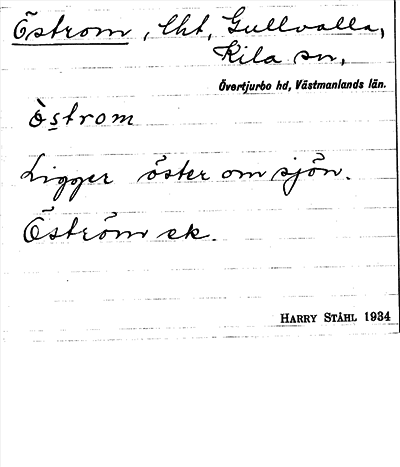 Östrom, lht, Gullvalla,
Kila sn,
Övertjurbo hd, Västmanlands län.
ὸ̈s̱trom
Ligger öster om sjön.
Öström ek.
HARRY STÅHL 1934